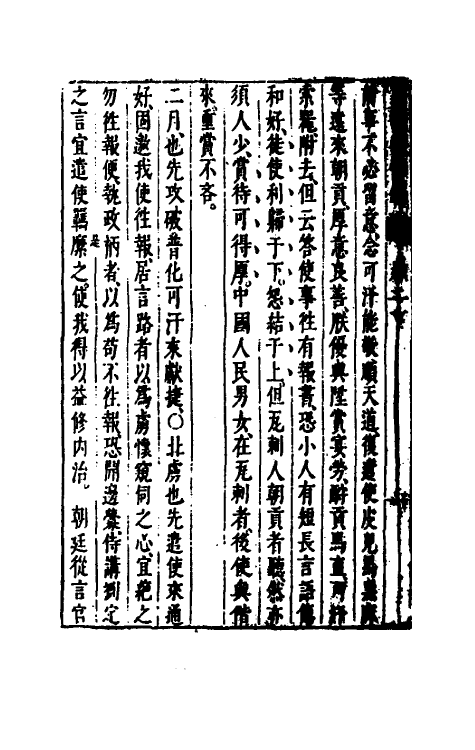 前事不必留意念可汗能敬順天道復遣使皮兒馬黑麻
等遠來朝貢厚意良善朕優與陞賞宴勞酬貢馬直可汗
索䘚附去但云答使事往有報書恐小人有短長言語傷
和好徒使利歸于下怨結于上但瓦剌人朝貢者聽然亦
須人少賞待可得厚中國人民男女在瓦剌者後使與偕
來重賞不吝。
二月也先攻破普化可汗來獻捷○北虜也先遣使來通
好固邀我使往報居言路者以爲虜懷窺伺之心宜絕之
勿往報便執政柄者以爲苟不往報恐開邊釁侍講劉定
之言宜遣使羈縻之使我得以益修內治。朝廷從言官
是